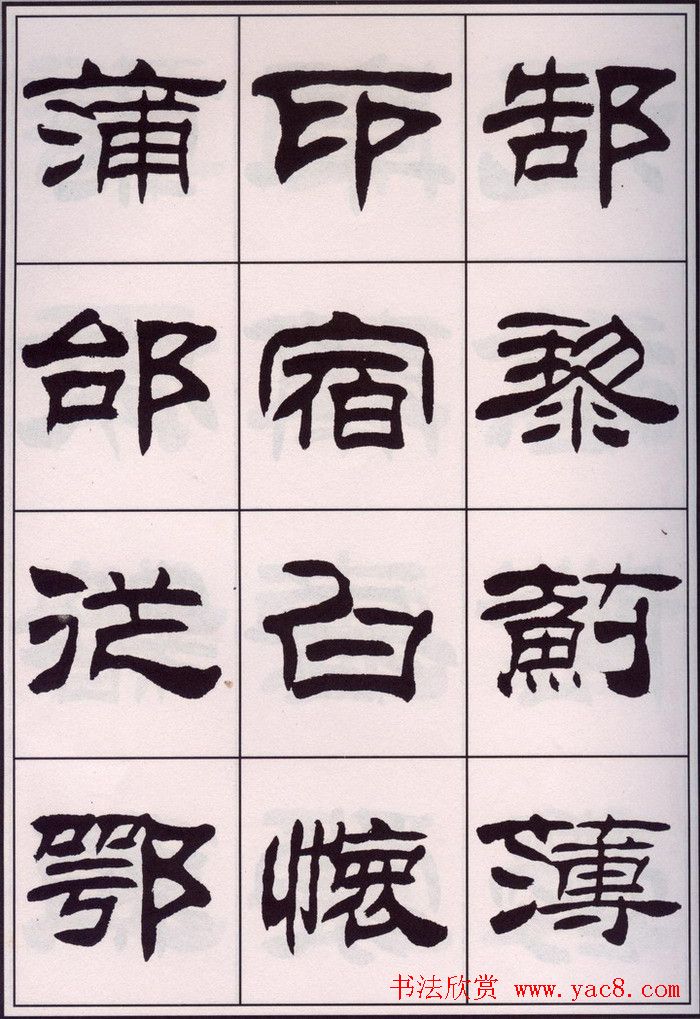 郜黎薊薄
印宿白懷
蒲邰從鄂
书法欣赏 www.yac8.com